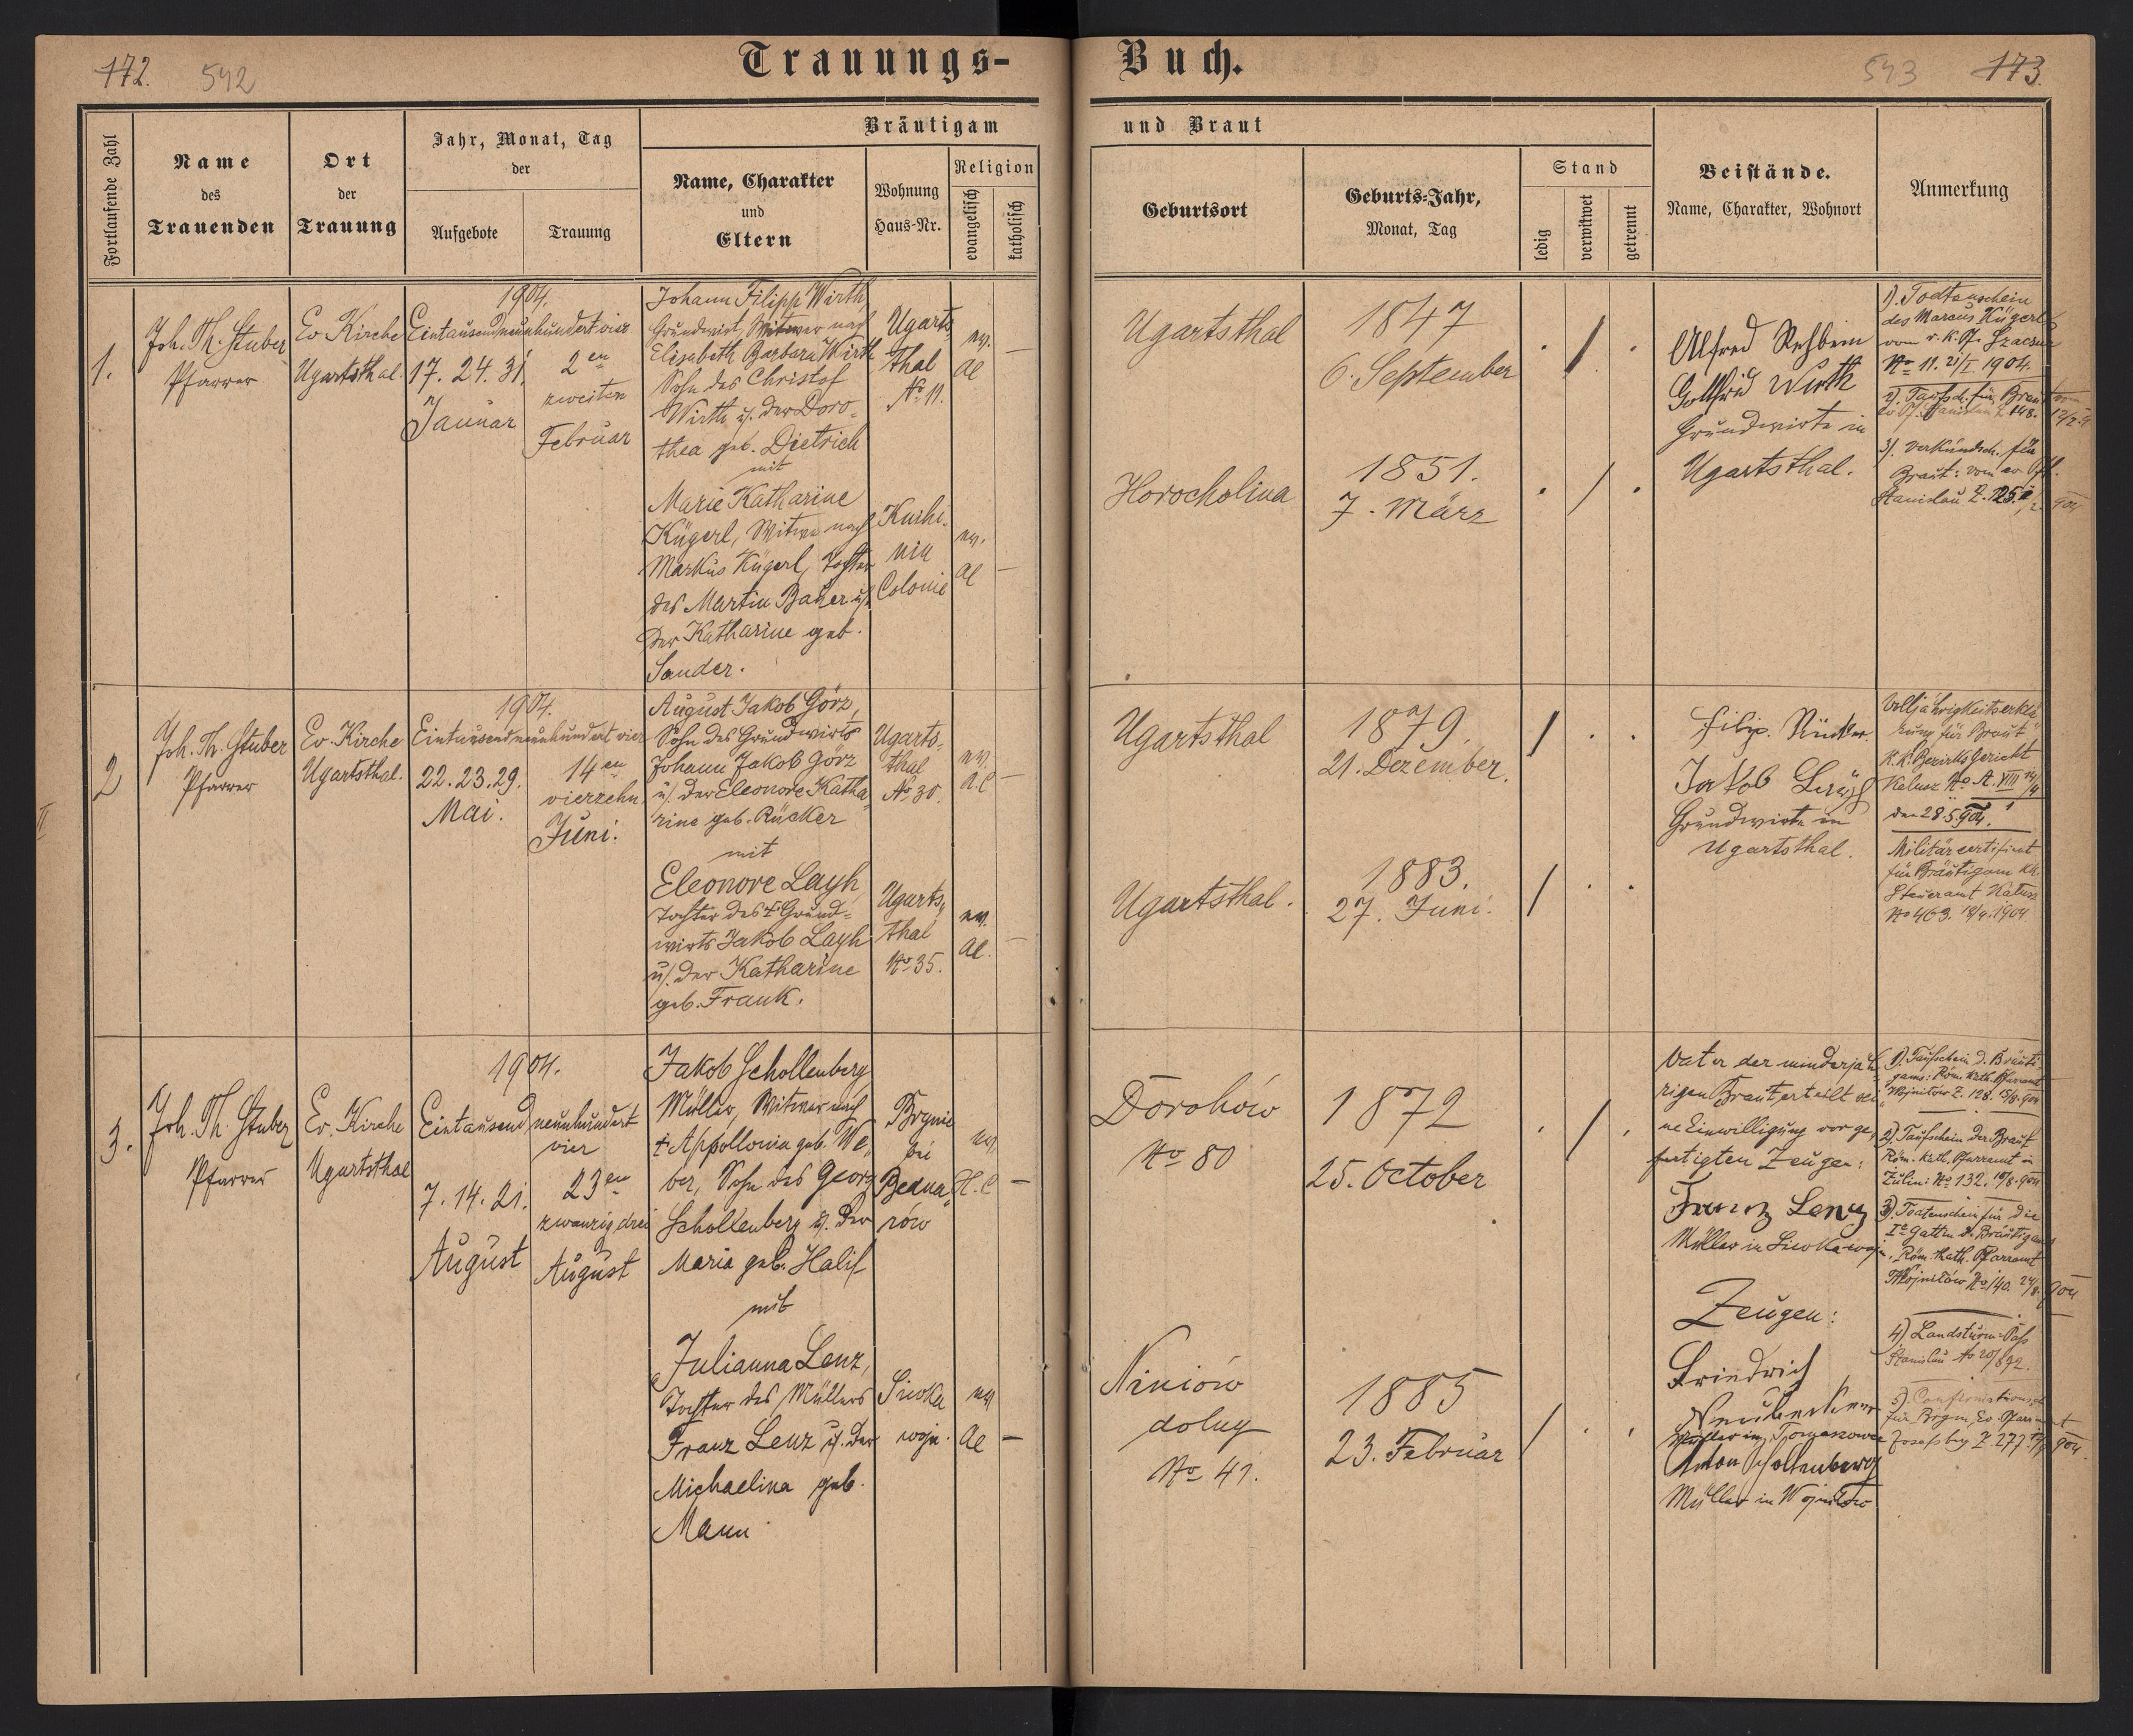 172. 542
Trauungs-
Buch.
543 173.
Fortlaufende Zahl
Name
des
Trauenden
Ort
der
Trauung
Jahr, Monat, Tag
der
Aufgebote
Trauung
Bräutigam
Name, Charakter
und
Eltern
Wohnung
Haus-Nr.
Religion
evangelisch
katholisch
und Braut
Geburtsort
Geburts-Jahr,
Monat, Tag
Stand
ledig
verwitwet
getrennt
Beistände.
Name, Charakter, Wohnort
Anmerkung
1.
Joh. Th. Stuber
Pfarrer
Ev Kirche
Ugartsthal.
1904.
Eintausendneunhundertvier
17. 24. 31.
Januar
2en
zweiten
Februar
Johann Filipp Wirth,
Grundwirt, Witwer nach
Elisabeth Barbara Wirth
Sohn des Christof
Wirth u. der Doro-
thea geb. Dietrich
mit
Marie Katharine
Kügerl, Witwe nach
Markus Kügerl, Tochter
des Martin Bauer u.
der Katharine geb.
Sander.
Ugarts-
thal
No 11.
ev.
AC
—
Colonie
ev.
AC
—
Ugartsthal
1847
6. September
Horocholina
1851.
7. März
Alfred Rehbein
Gottfrid Wirth
Grundwirte in
Ugartsthal.
1). Todtenschein
des Marcus Kügerl
vom r. k. Pf.
No 11. 21/I 1904.
2). Taufsch. für Braut vom
ev Pf. Stanislau Z. 148.
3). Verkündsch. für
Braut: vom ev. Pf.
Stanislau Z. 125.
2
Joh. Th. Stuber
Pfarrer
Ev. Kirche
Ugartsthal.
1904.
Eintausendneunhundertvier
22. 23. 29.
Mai.
14en
vierzehn
Juni.
August Jakob Görz,
Sohn des Grundwirts
Johann Jakob Görz
u. der Eleonore Katha-
rine geb. Rücker
mit
Eleonore Layh,
Tochter des † Grund-
wirts Jakob Layh
u. der Katharine
geb. Frank.
Ugarts-
thal
No 30.
ev.
A.C
—
Ugarts-
thal
No 35.
ev.
AC.
—
Ugartsthal
1879.
21. Dezember.
Ugartsthal.
1883.
27. Juni.
Filip. Rücker.
Jakob
Grundwirte in
Ugartsthal.
Volljährigkeitserklä-
rung für Braut
K.K. Bezirksgericht
Kalusz No A. VIII
den 28.5.904.
Militärcertificat
für Bräutigam KK.
Steueramt Kalusz
No 463. 18/4.1904
II
3.
Joh. Th. Stuber
Pfarrer
Ev. Kirche
Ugartsthal
1904.
Eintausend neunhundert
vier
7. 14. 21.
August
23en
zwanzigdrei
August
Jakob Schollenberg
Müller, Witwer nach
† Appollonia geb. We-
ber, Sohn des Georg
Schollenberg u. der
Maria geb. Halif
mit
Julianna Lenz,
Tochter des Müllers
Franz Lenz u. der
Michaelina geb.
Mann
Brynie
bei
Bedna-
rów
ev.
H.C
—
Siwka
wojn.
ev
AC
—
Dorohów
No 80
1872
25. October
Niniów
dolny
No 41.
1885
23. Februar
Vater der minderjäh-
rigen Braut erteilt sei-
ne Einwilligung vor ge-
fertigten Zeugen:
Franz Lenz
Müller in Siwka wojn.
Zeugen:
Friedrich
Neubecker
Müller in Tomaszowce
Anton Schollenberg
Müller in Wojniłów
1). Taufschein d. Bräuti-
gams: Röm. kath. Pfarramt
Wojniłów Z. 128. 15/8. 904
2). Taufschein der Braut
Röm. kath. Pfarramt in
Zulin: No 132. 19/8. 904
3). Todtenschein für die
Ie Gattin d. Bräutigams
Röm. kath. Pfarramt
Wojniłów No 140. 24/8. 904
4) Landsturm-Pass
Stanislau No 20/892.
5).
für Brtgm, Ev. Pfarramt
Josefsberg Z. 277. 904.